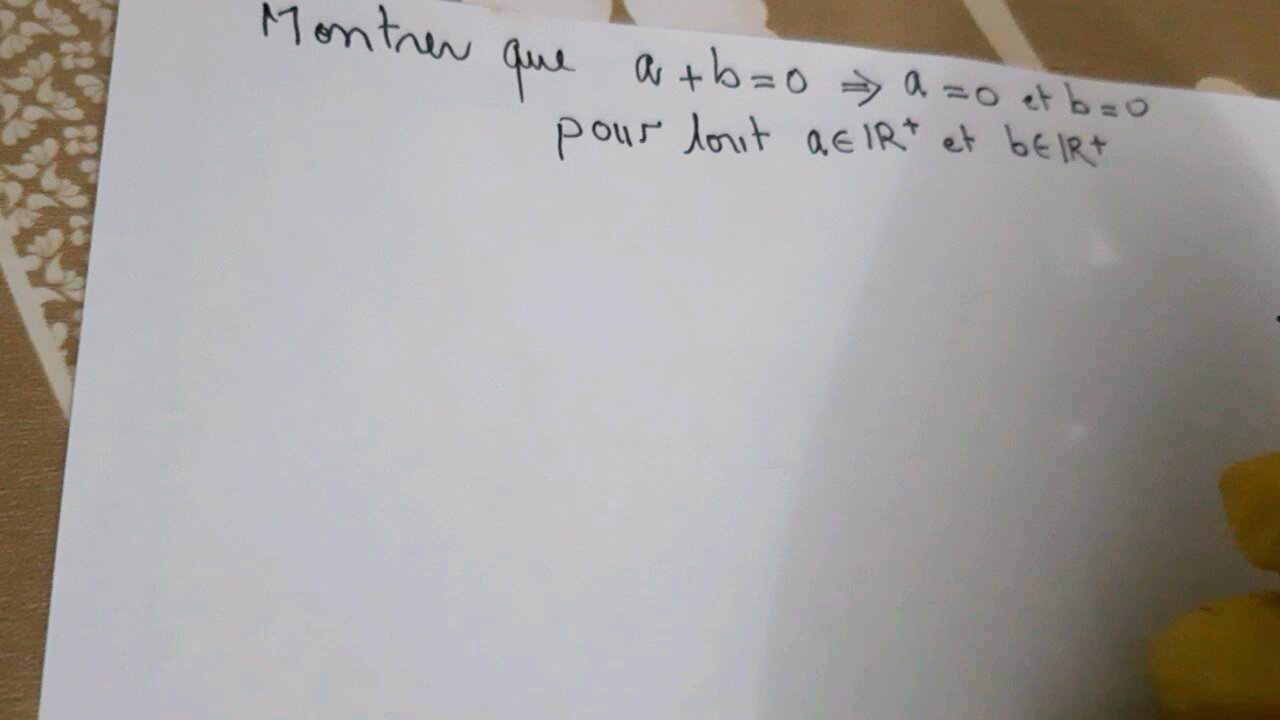 Montrer que a + b = 0 ⇒ a = 0 et b = 0
pour tout a ∈ IR⁺ et b ∈ IR⁺